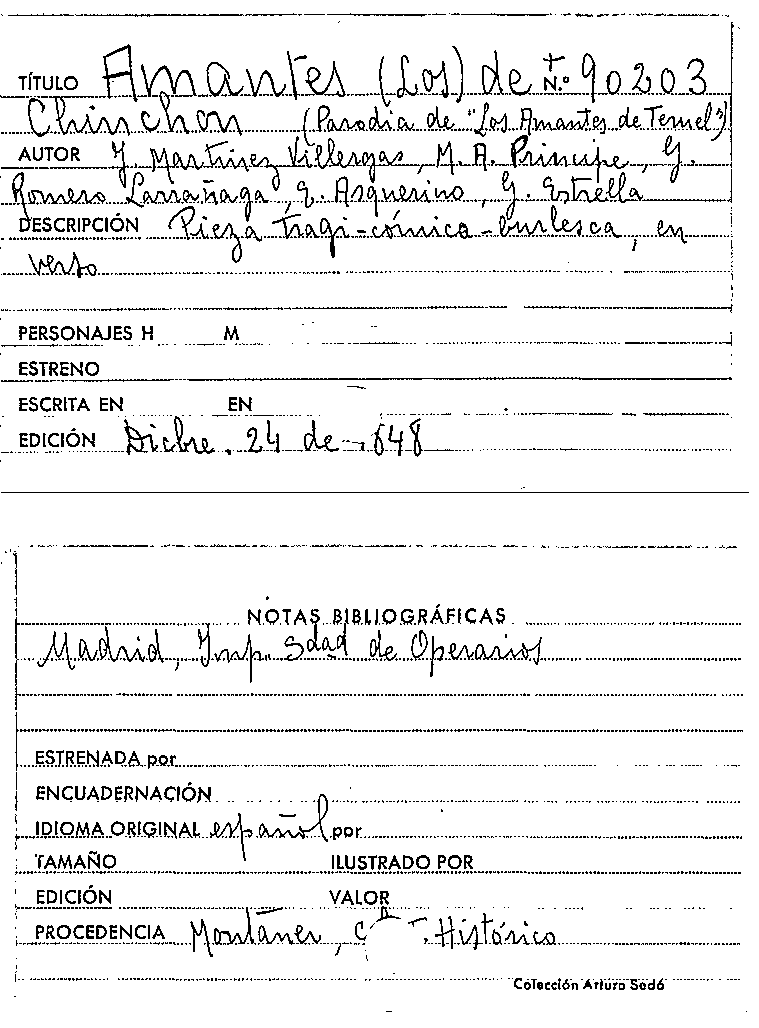 TÍTULO Amantes (Los) de N.º 90203
Chinchon (Parodia de "Los Amantes de Teruel")
AUTOR J. Martínez Villergas, M. A. Principe, G.
Romero Larrañaga, E. Asquerino, G. Estrella
DESCRIPCIÓN Pieza tragi-cómico-burlesca, en
verso
PERSONAJES H M
ESTRENO
ESCRITA EN EN
EDICIÓN Dicbre. 24 de 1848
NOTAS BIBLIOGRÁFICAS
Madrid, Imp. Sdad de Operarios
ESTRENADA por
ENCUADERNACIÓN
IDIOMA ORIGINAL español por
TAMAÑO ILUSTRADO POR
EDICIÓN VALOR
PROCEDENCIA Montaner, T. Histórico
Colección Arturo Sedó